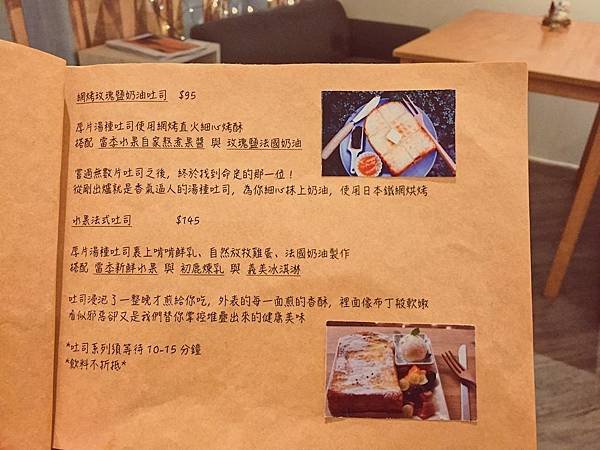 網烤玫瑰鹽奶油吐司 $95
厚片湯種吐司使用網烤直火細心烤酥
搭配 當季水果自家熬煮果醬 與 玫瑰鹽法國奶油
嘗過無數片吐司之後，終於找到命定的那一位！
從剛出爐就是香氣逼人的湯種吐司，為你細心抹上奶油，使用日本鐵網烘烤
水果法式吐司 $145
厚片湯種吐司裹上啃啃鮮乳、自然放牧雞蛋、法國奶油製作
搭配 當季新鮮水果 與 初鹿煉乳 與 義美冰淇淋
吐司浸泡了一整晚才煎給你吃，外表的每一面煎的香酥，裡面像布丁般軟嫩
看似邪惡卻又是我們替你掌控堆疊出來的健康美味
*吐司系列須等待 10-15 分鐘
*飲料不折抵*